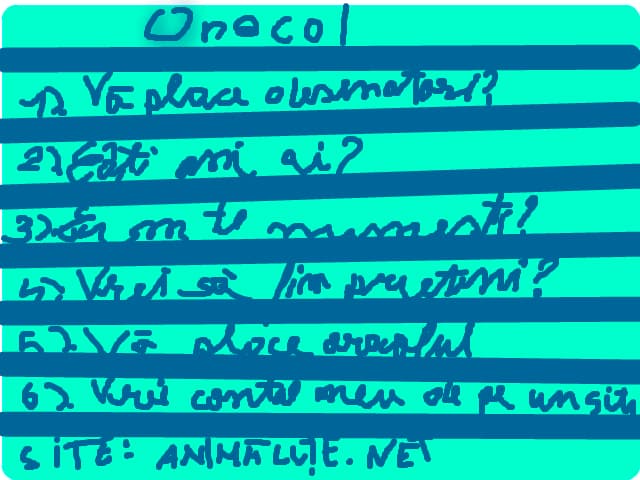 Oracol
1) Vă place desenatori?
2) Câți ani ai?
3) Cum te numești?
4) Vrei să fim prieteni?
5) Vă place grupul
6) Vrei contul meu de pe un sit
SITE: ANIMĂLUȚE.NET